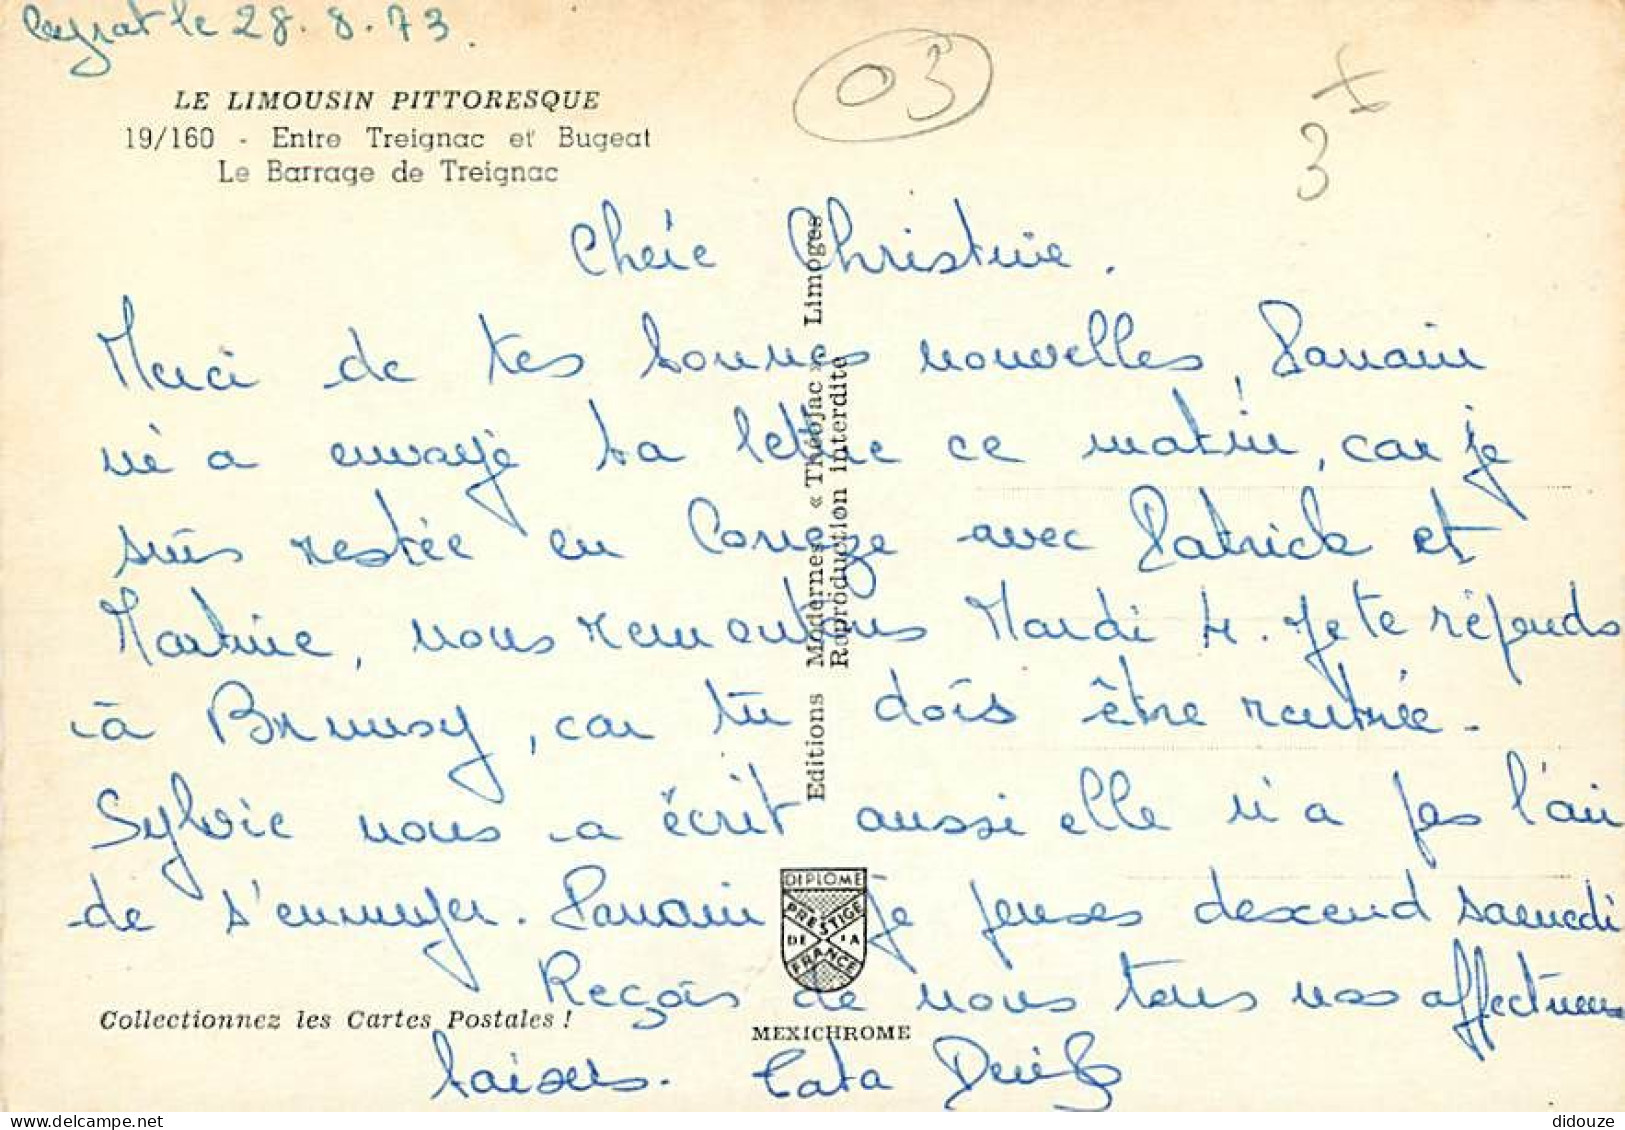 le 28.8.73.
03
3
LE LIMOUSIN PITTORESQUE
19/160 - Entre Treignac et Bugeat
Le Barrage de Treignac
Chère Christine.
Merci de tes bonnes nouvelles, Parrain
m'a envoyé ta lettre ce matin, car je
suis restée en Corrèze avec Patrick et
Martine, nous remontons Mardi 4. Je te réponds
à Brunoy, car tu dois être rentrée.
Sylvie nous a écrit aussi elle n'a pas l'air
de s'ennuyer. Parrain je penses descend samedi
Reçois de nous tous nos affectueux
baisers. Tata
Editions Modernes « Théojac » Limoges
Reproduction interdite
DIPLOME
PRESTIGE
DE LA
FRANCE
Collectionnez les Cartes Postales !
MEXICHROME
didouze